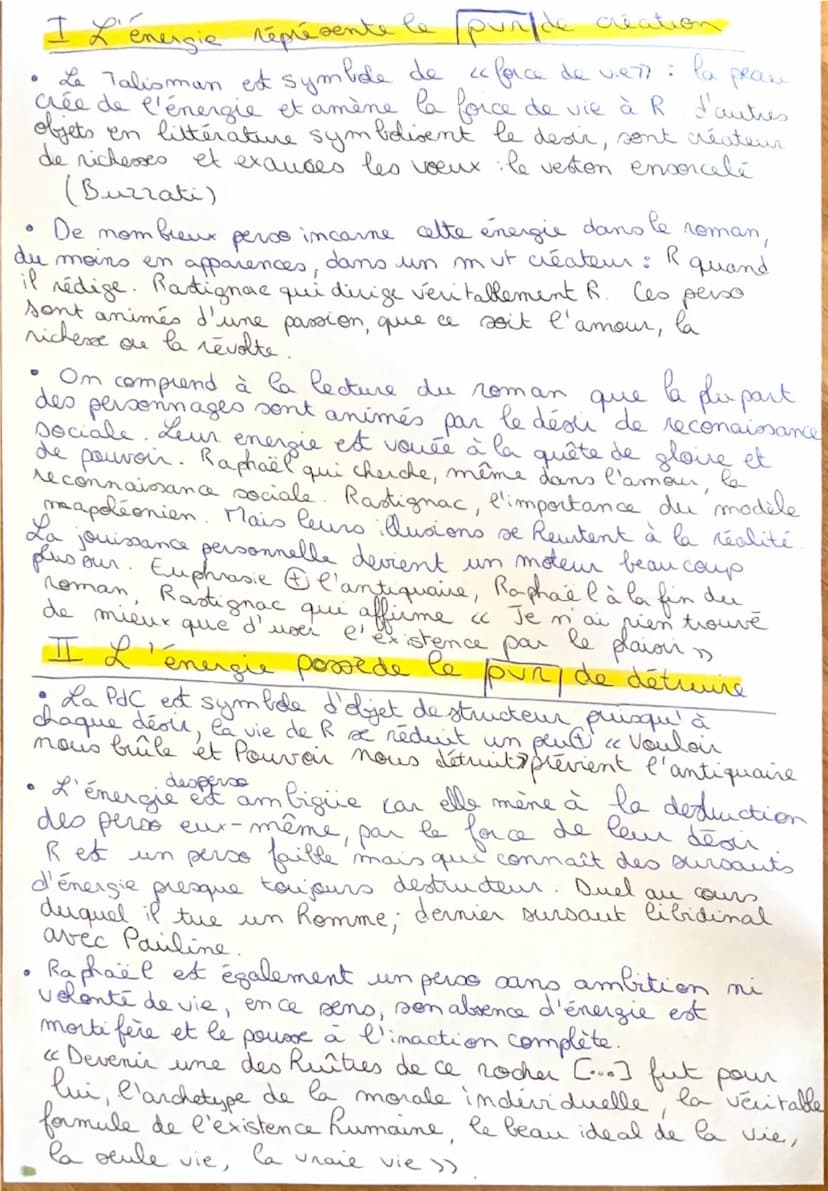 I L'énergie représente le pvr de création
• Le Talisman est symbole de «force de vie» : la peau
crée de l'énergie et amène la force de vie à R d'autres
objets en littérature symbolisent le desir, sont créateur
de richesses et exauces les voeux : le veston ensorcelé
(Buzzati)
• De nombreux perso incarne cette énergie dans le roman,
du moins en apparences, dans un mvt créateur : R quand
il rédige. Rastignac qui dirige véritablement R. Ces perso
sont animés d'une passion, que ce soit l'amour, la
richesse ou la révolte.
• On comprend à la lecture du roman que la plupart
des personnages sont animés par le désir de reconaissance
sociale. Leur energie est vouée à la quête de gloire et
de pouvoir. Raphaël qui cherche, même dans l'amour, la
reconnaissance sociale. Rastignac, l'importance du modèle
napoléonien. Mais leurs illusions se heurtent à la réalité.
La jouissance personnelle devient un moteur beaucoup
plus sur. Euphrasie + l'antiquaire, Raphaël à la fin du
roman, Rastignac qui affirme « Je n'ai rien trouvé
de mieux que d'user l'existence par le plaisir »
II L'énergie possède le pvr de détruire
• La PdC est symbole d'objet destructeur puisqu'à
chaque désir, la vie de R se réduit un peu + « Vouloir
nous brûle et Pouvoir nous détruit» prévient l'antiquaire
• L'énergie des perso est ambigüe car elle mène à la destruction
des perso eux-même, par la force de leur désir
R est un perso faible mais qui connaît des sursauts
d'énergie presque toujours destructeur. Duel au cours
duquel il tue un homme ; dernier sursaut libidinal
avec Pauline.
• Raphaël est également un perso sans ambition ni
volonté de vie, en ce sens, son absence d'énergie est
mortifère et le pousse à l'inaction complète.
« Devenir une des huîtres de ce rocher [...] fut pour
lui, l'archetype de la morale individuelle, la véritable
formule de l'existence humaine, le beau ideal de la vie,
la seule vie, la vraie vie »